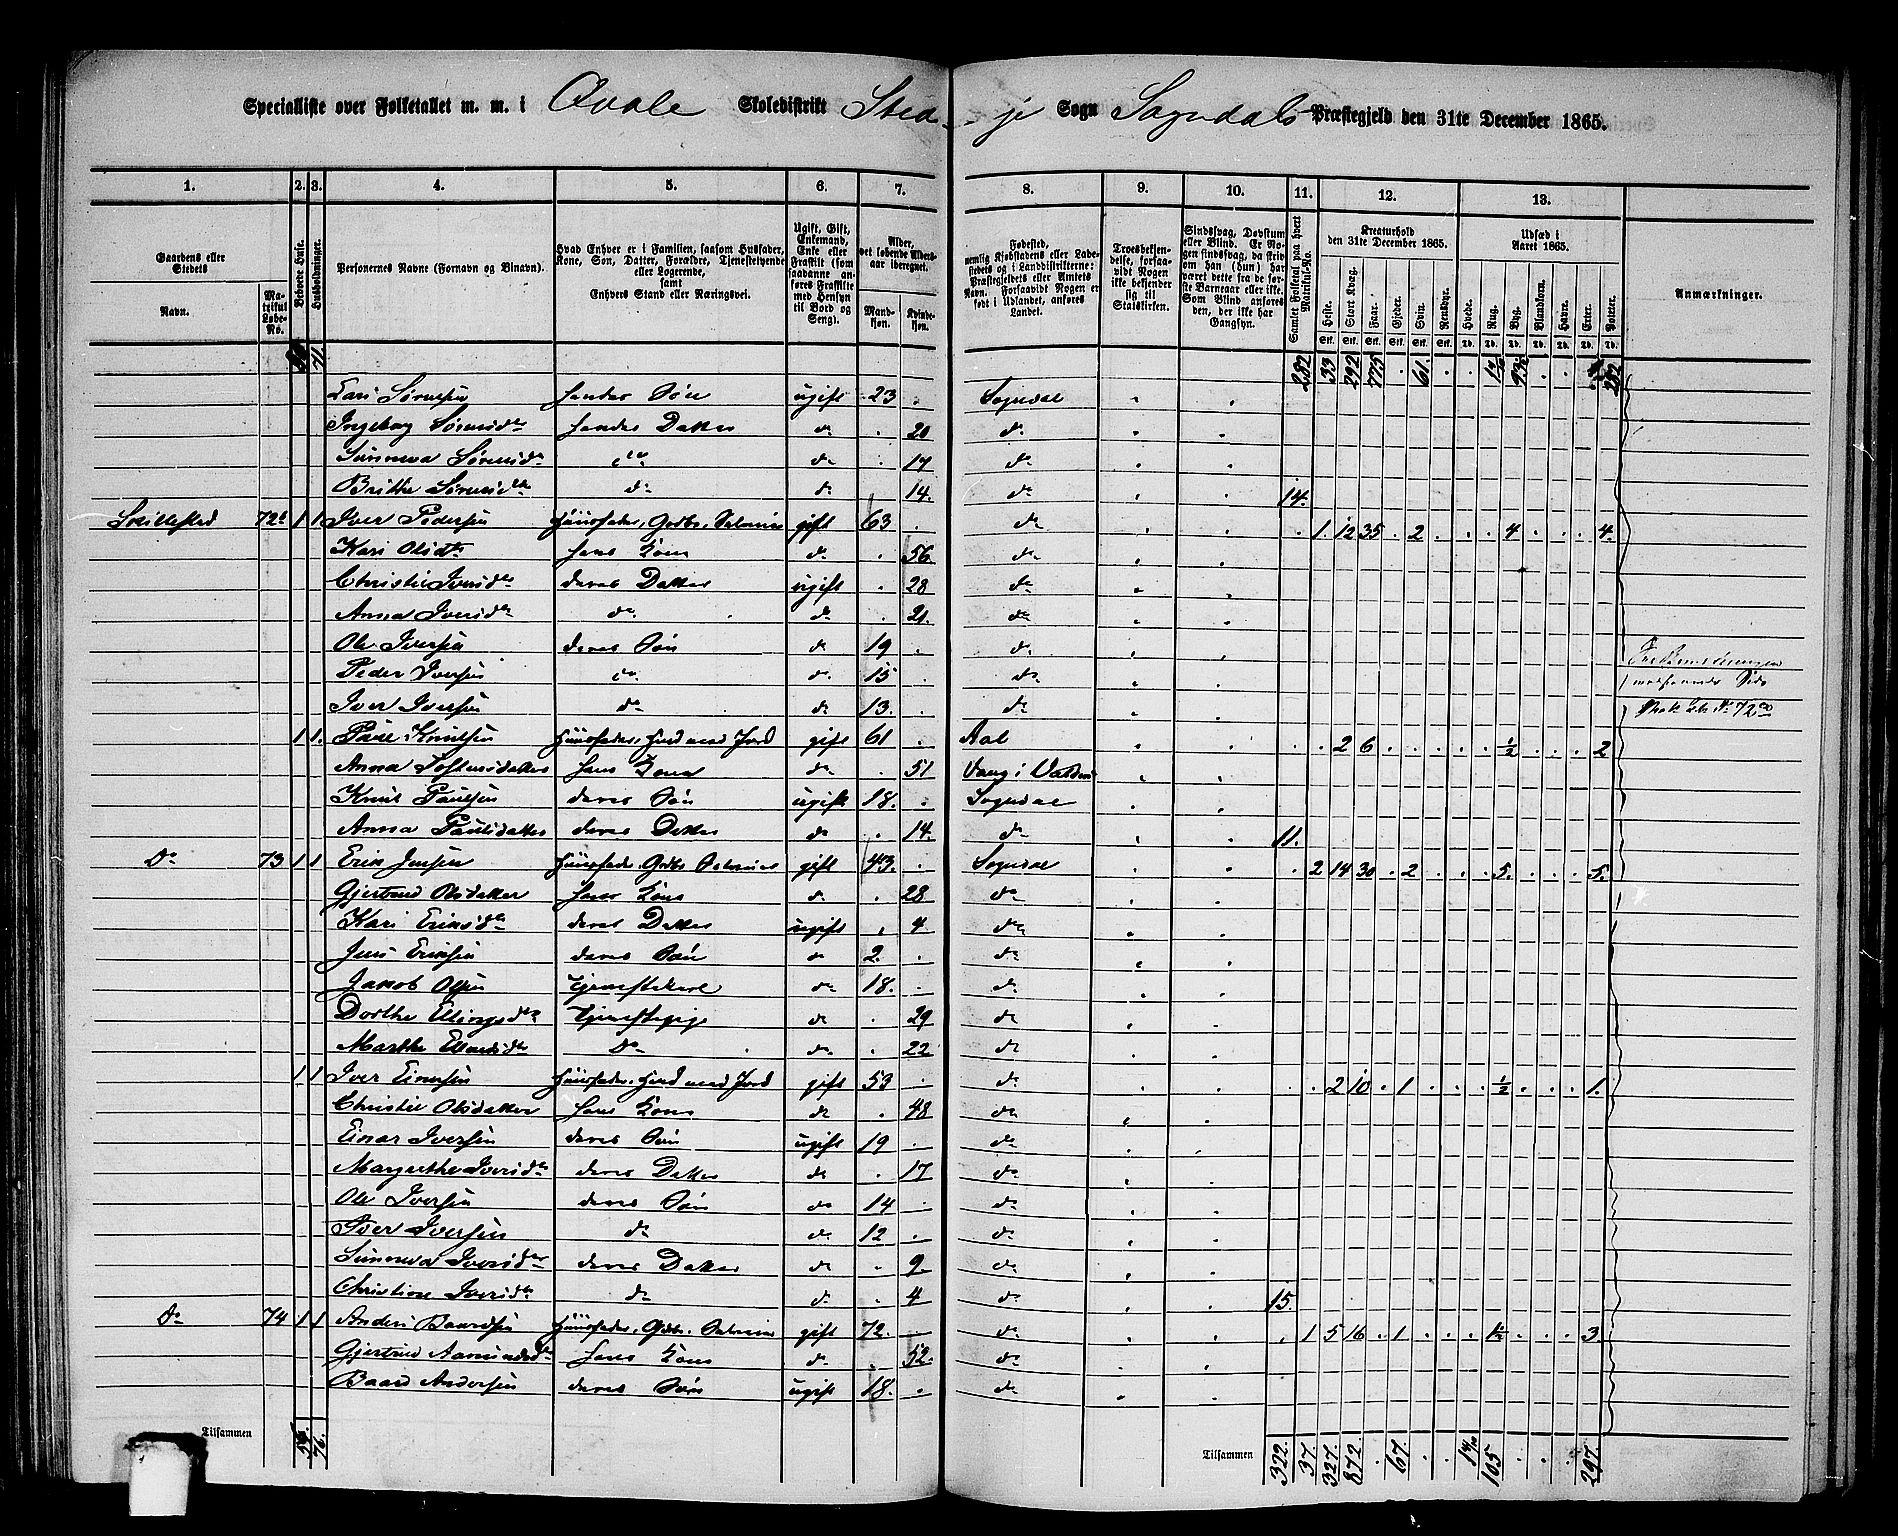 Specialliste over Folketallet m. m. i Qvale Skoledistrikt Stedje Sogn Sogndals Præstegjeld den 31te December 1865.
1. 2. 3. 4. 5. 6. 7. 8. 9. 10. 11. 12. 13.
Gaardens eller Stedets
Navn. Matrikul Løbe-No.
Beboede Huse.
Husholdninger.
Personernes Navne (Fornavn og Binavn).
Hvad Enhver er i Familien, saasom Husfader, Kone, Søn, Datter, Forældre, Tjenestetyende eller Logerende, samt Enhvers Stand eller Næringsvei.
Ugift, Gift, Enkemand, Enke eller Fraskilt (som saadanne anføres Fraskilte med Hensyn til Bord og Seng).
Alder, det løbende Aldersaar iberegnet.
Mandkjøn. Kvindekjøn.
Fødested, nemlig Kjøbstadens eller Ladestedets og i Landdistrikterne: Præstegjeldets eller Amtets Navn. Forsaavidt Nogen er født i Udlandet, anføres Landet.
Troesbekjendelse, forsaavidt Nogen ikke bekjender sig til Statskirken.
Sindssvag, Døvstum eller Blind. Er Nogen sindssvag, da skrives om han (hun) har været dette fra de første Barneaar eller ikke. Som Blind anføres den, der ikke har Gangsyn.
Samlet Folketal paa hvert Matrikul-No.
Kreaturhold den 31te December 1865.
Heste. Stort Kvæg. Faar. Gjeder. Svin. Rensdyr.
Udsæd i Aaret 1865.
Hvede. Rug. Byg. Blandkorn. Havre. Erter. Poteter.
Anmærkninger.
71. 282 33 292 775 . 61 . . . . 282
Lari Sørensen Hendes Søn ugift 23 . Sogndal
Ingeborg Sørensdr Hendes Datter do . 20 do
Sunneva Sørensdr do do . 17 do
Brithe Sørensdr do do . 14. do 14.
Skillestad 72b 1 1 Iver Pedersen Huusfader, Gdbr. Selveier gift 63 . do . 1. 12 35 . 2 . . . 4 . . . 4.
Kari Olsdr Hans Kone do . 56 do
Christie Iversdr deres Datter ugift . 28 do
Anna Iversdr do do . 21. do
Ole Iversen deres Søn do 19 . do
Peder Iversen do do 15 . do
Iver Iversen do do 13. . do
1 1. Paul Knutsen Huusfader, Huusmd med Jord gift 61 . Aal . . 2 6 . . . . . ½ . . . 2
Anna Tostensdatter Hans Kone do . 51 Vang i Valders
Knut Paulsen deres Søn ugift 18. . Sogndal
Anna Paulsdatter deres Datter do . 14. do 11.
Do 73 1 1 Erik Jensen Huusfader, Gdbr. Selveier gift 43. . Sogndal . 2 14 30 . 2 . . . 5. . . . 5.
Gjertrud Olsdatter Hans Kone do . 28 do
Kari Eriksdr deres Datter ugift . 4. do
Jens Eriksen deres Søn do 2. . do
Jakob Olsen Tjenestekarl do 18. . do
Dorthe Ellingsdr Tjenestepige do . 29 do
Marthe do do . 22 do
1 1 Iver Einersen Huusfader, Huusmd med Jord gift 53 . do . . 2 10 . 1 . . . ½ . . . 1.
Christie Olsdatter Hans Kone do . 48 do
Einar Iversen deres Søn ugift 19 . do
Margrethe Iversdr deres Datter do . 17 do
Ole Iversen deres Søn do 14 . do
Iver Iversen do do 12 . do
Sunneva Iversdr deres Datter do . 9. do
Christine Iversdr do do . 4 do 15.
Do 74 1 1 Anders Baardsen Huusfader, Gdbr. Selveier gift 72. . do . 1 5 16 . 1 . . . 1½ . . . 3.
Gjertrud Aamundsdr Hans Kone do . 52. do
Baard Andersen deres Søn ugift 18. . do
Tilsammen 76. Tilsammen 322. 37. 327. 872. . 67. . 105 . . . 297.